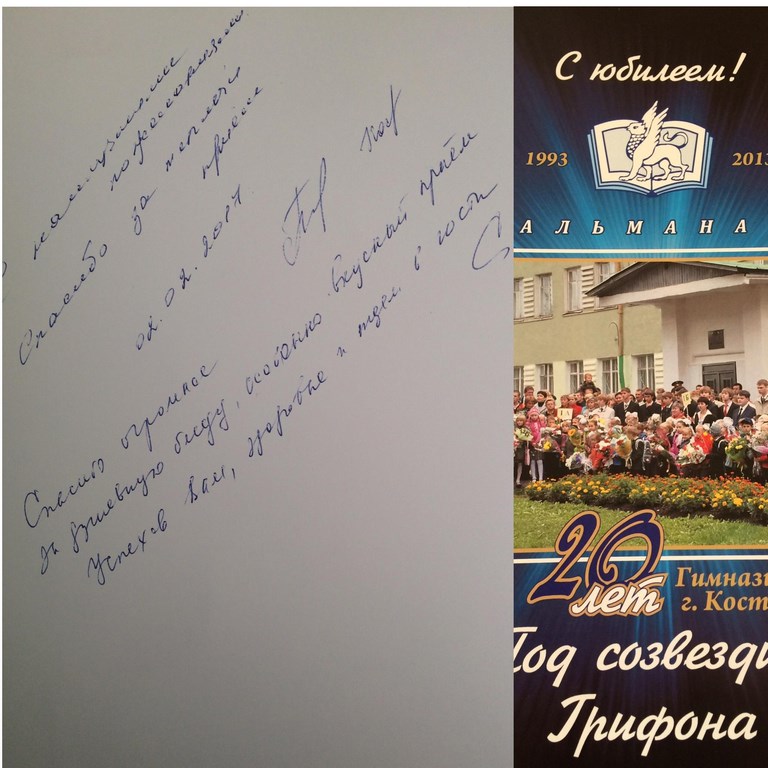 Спасибо за теплый
приём
02.02.2017.
Спасибо огромное
за душевную беседу, особенно вкусный приём
Успехов Вам, здоровье и ждем в гости
С юбилеем!
1993 2013
АЛЬМАНА
20 лет
Гимнази
г. Кост
Под созвезди
Грифона